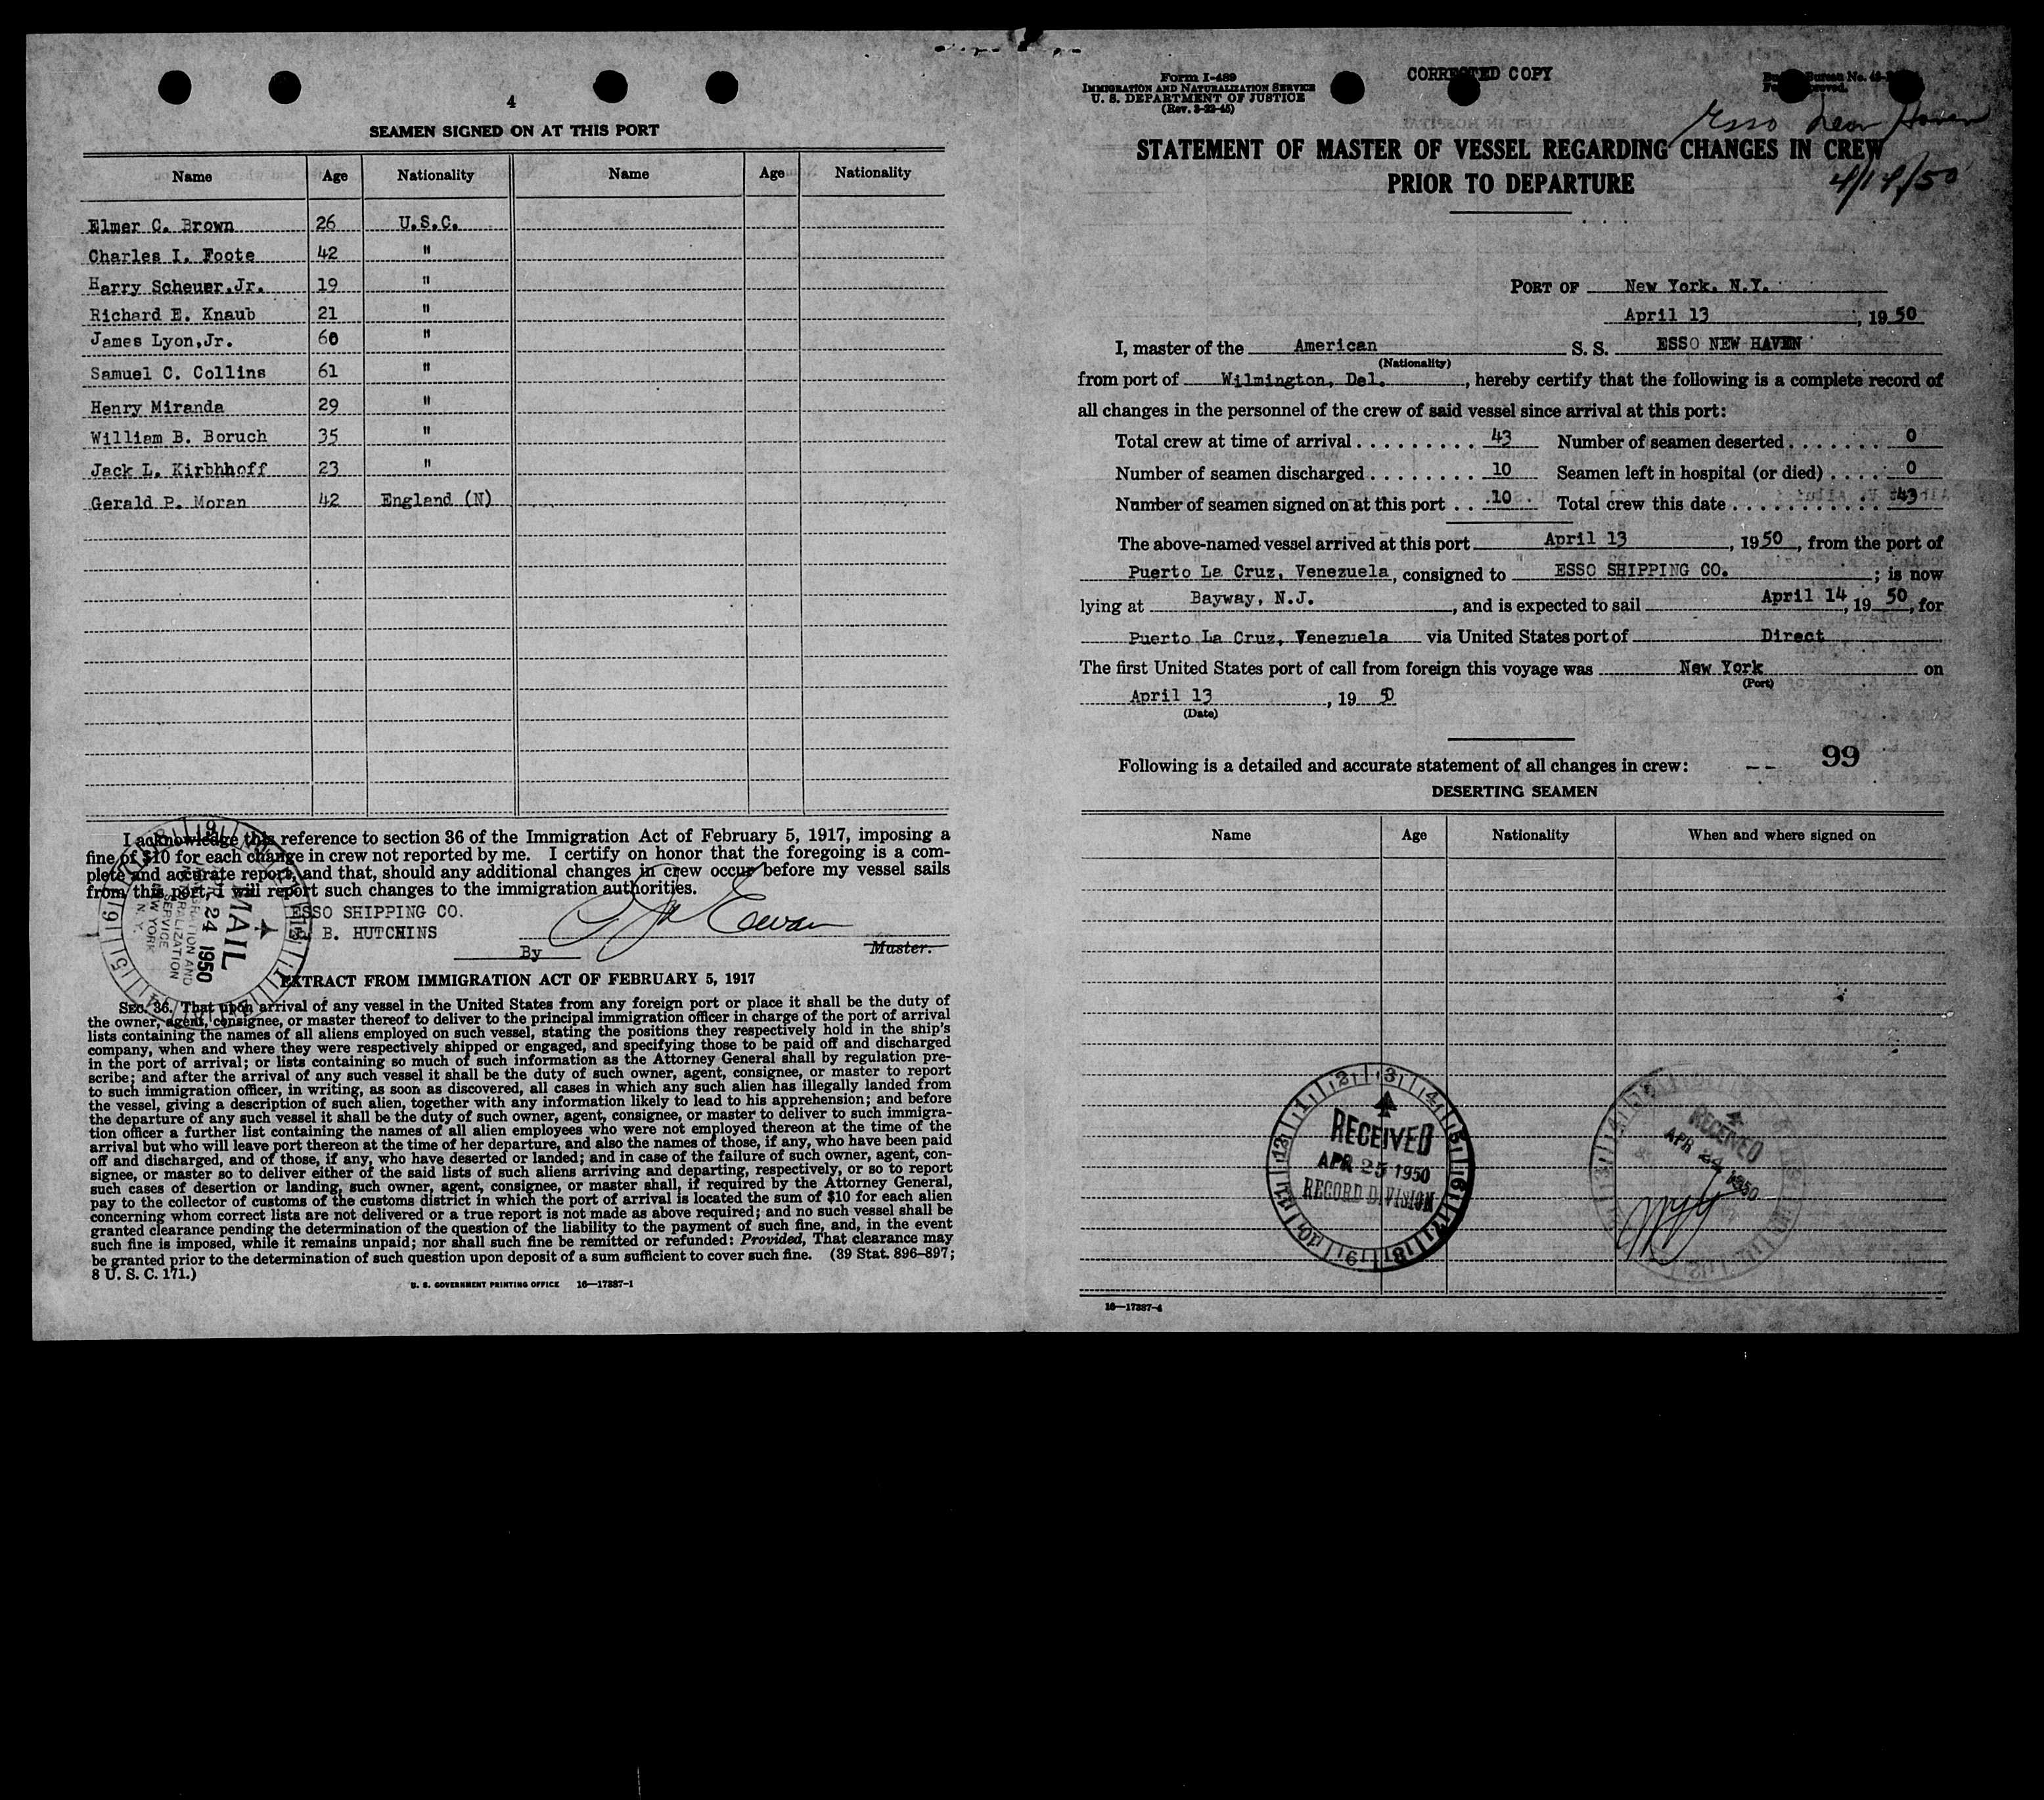 4
SEAMEN SIGNED ON AT THIS PORT
Name Age Nationality Name Age Nationality
Elmer C. Brown 26 U.S.C.
Charles I. Foote 42 "
Harry Scheuer,Jr. 19 "
Richard E. Knaub 21 "
James Lyon,Jr. 60 "
Samuel C. Collins 61 "
Henry Miranda 29 "
William B. Boruch 35 "
Jack L. Kirbhhoff 23 "
Gerald P. Moran 42 England (N)
I acknowledge this reference to section 36 of the Immigration Act of February 5, 1917, imposing a
fine of $10 for each change in crew not reported by me. I certify on honor that the foregoing is a com-
plete and accurate report, and that, should any additional changes in crew occur before my vessel sails
from this port, I will report such changes to the immigration authorities.
ESSO SHIPPING CO.
B. HUTCHINS
By
Master.
MAIL
24 1950
IMMIGRATION AND
NATURALIZATION
SERVICE
NEW YORK
N. Y.
EXTRACT FROM IMMIGRATION ACT OF FEBRUARY 5, 1917
SEC. 36. That upon arrival of any vessel in the United States from any foreign port or place it shall be the duty of
the owner, agent, consignee, or master thereof to deliver to the principal immigration officer in charge of the port of arrival
lists containing the names of all aliens employed on such vessel, stating the positions they respectively hold in the ship's
company, when and where they were respectively shipped or engaged, and specifying those to be paid off and discharged
in the port of arrival; or lists containing so much of such information as the Attorney General shall by regulation pre-
scribe; and after the arrival of any such vessel it shall be the duty of such owner, agent, consignee, or master to report
to such immigration officer, in writing, as soon as discovered, all cases in which any such alien has illegally landed from
the vessel, giving a description of such alien, together with any information likely to lead to his apprehension; and before
the departure of any such vessel it shall be the duty of such owner, agent, consignee, or master to deliver to such immigra-
tion officer a further list containing the names of all alien employees who were not employed thereon at the time of the
arrival but who will leave port thereon at the time of her departure, and also the names of those, if any, who have been paid
off and discharged, and of those, if any, who have deserted or landed; and in case of the failure of such owner, agent, con-
signee, or master so to deliver either of the said lists of such aliens arriving and departing, respectively, or so to report
such cases of desertion or landing, such owner, agent, consignee, or master shall, if required by the Attorney General,
pay to the collector of customs of the customs district in which the port of arrival is located the sum of $10 for each alien
concerning whom correct lists are not delivered or a true report is not made as above required; and no such vessel shall be
granted clearance pending the determination of the question of the liability to the payment of such fine, and, in the event
such fine is imposed, while it remains unpaid; nor shall such fine be remitted or refunded: Provided, That clearance may
be granted prior to the determination of such question upon deposit of a sum sufficient to cover such fine. (39 Stat. 896-897;
8 U. S. C. 171.)
U. S. GOVERNMENT PRINTING OFFICE 16—17387-1
Form I-489
IMMIGRATION AND NATURALIZATION SERVICE
U. S. DEPARTMENT OF JUSTICE
(Rev. 3-22-45)
CORRECTED COPY
Esso New Haven
4/14/50
STATEMENT OF MASTER OF VESSEL REGARDING CHANGES IN CREW
PRIOR TO DEPARTURE
PORT OF New York. N.Y.
April 13, 1950
I, master of the American S. S. ESSO NEW HAVEN
(Nationality)
from port of Wilmington, Del., hereby certify that the following is a complete record of
all changes in the personnel of the crew of said vessel since arrival at this port:
Total crew at time of arrival 43 Number of seamen deserted 0
Number of seamen discharged 10 Seamen left in hospital (or died) 0
Number of seamen signed on at this port 10 Total crew this date 43
The above-named vessel arrived at this port April 13, 1950, from the port of
Puerto La Cruz, Venezuela, consigned to ESSO SHIPPING CO.; is now
lying at Bayway, N.J., and is expected to sail April 14, 1950, for
Puerto La Cruz, Venezuela via United States port of Direct
The first United States port of call from foreign this voyage was New York on
(Port)
April 13, 1950
(Date)
Following is a detailed and accurate statement of all changes in crew: -- 99
DESERTING SEAMEN
Name Age Nationality When and where signed on
RECEIVED
APR 25 1950
RECORD DIVISION
RECEIVED
APR 24 1950
16—17387-4